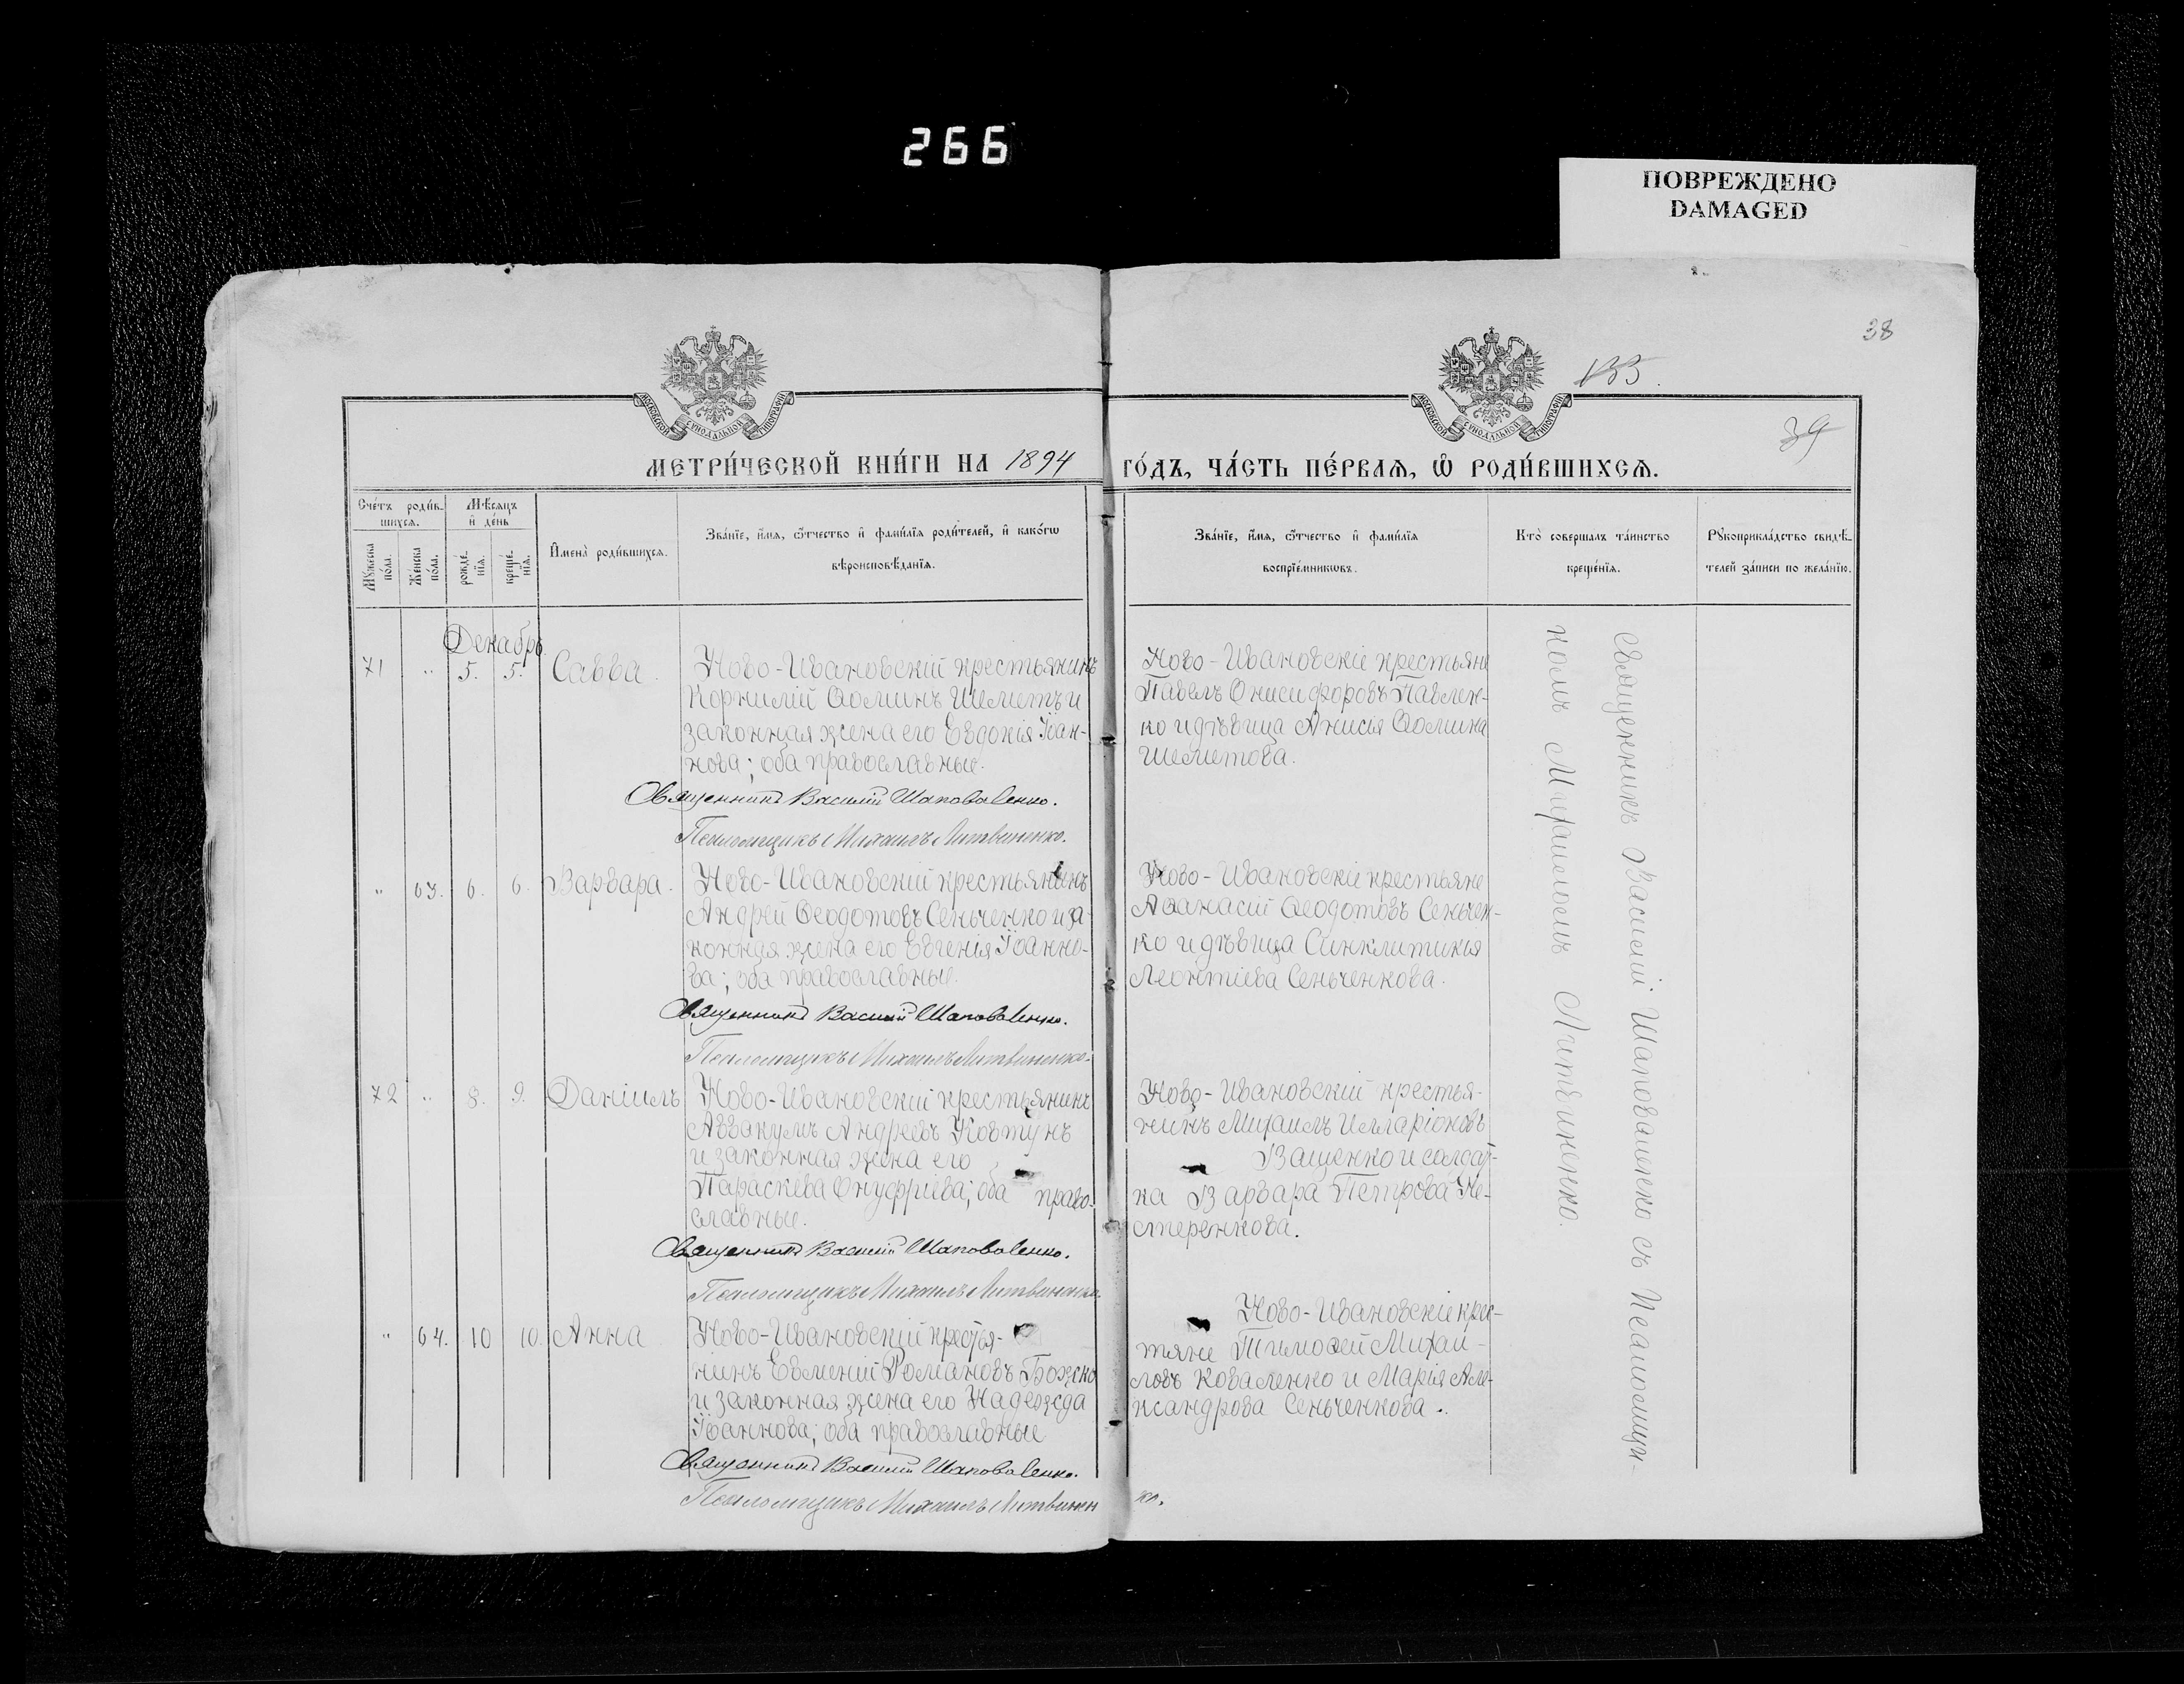 266
ПОВРЕЖДЕНО
DAMAGED
38
39
МОСКОВСКОЙ СѴНОДАЛЬНОЙ ТИПОГРАФІИ
МОСКОВСКОЙ СѴНОДАЛЬНОЙ ТИПОГРАФІИ
МЕТРИ́ЧЕСКОЙ КНИ́ГИ НА 1894 ГО́ДЪ, ЧА́СТЬ ПЕ́РВАѦ, Ѡ҆ РОДИ́ВШИХСѦ.
Сче́тъ роди́в-
шихсѧ.
Мѣ́сѧцъ
и҆ де́нь
Мꙋ́жеска по́ла.
Же́нска по́ла.
рожде́нїѧ.
креще́нїѧ.
И҆мена̀ роди́вшихсѧ.
Зва́нїе, и҆́мѧ, ѻ҆́тчество и҆ фами́лїѧ роди́телей, и҆ како́гѡ
вѣроисповѣ́данїѧ.
Зва́нїе, и҆́мѧ, ѻ҆́тчество и҆ фами́лїѧ
воспрїе́мникѡвъ.
Кто̀ соверша́лъ та́инство
креще́нїѧ.
Рꙋкоприкла́дство свидѣ́-
телей за́писи по жела́нїю.
Декабрь
71 " 5. 5. Савва.
Ново-Ивановскій крестьянинъ
Корнилій Ѳоминъ Шелистъ и
законная жена его Евдокія Іоан-
нова; оба православные.
Священникъ Василій Шаповаленко.
Псаломщикъ Михаилъ Литвиненко.
Ново-Ивановскіе крестьяне
Павелъ Онисифоровъ Павлен-
ко и дѣвица Анисія Ѳомина
Шелистова.
" 63. 6. 6. Варвара.
Ново-Ивановскій крестьянинъ
Андрей Ѳеодотовъ Сеньченко и за-
конная жена его Евгенія Іоанно-
ва; оба православные.
Священникъ Василій Шаповаленко.
Псаломщикъ Михаилъ Литвиненко.
Ново-Ивановскіе крестьяне
Аѳанасій Ѳеодотовъ Сеньчен-
ко и дѣвица Синклитикія
Леонтіева Сеньченкова.
72 " 8. 9. Даніилъ
Ново-Ивановскій крестьянинъ
Аввакумъ Андреевъ Ковтунъ
и законная жена его
Параскева Онуфріева; оба право-
славные.
Священникъ Василій Шаповаленко.
Псаломщикъ Михаилъ Литвиненко.
Ново-Ивановскій крестья-
нинъ Михаилъ Илларіоновъ
Ващенко и солдат-
ка Варвара Петрова Не-
стеренкова.
" 64. 10 10. Анна
Ново-Ивановскій крестья-
нинъ Евмений Романовъ Боженко
и законная жена его Надежда
Іоаннова; оба православные
Священникъ Василій Шаповаленко.
Псаломщикъ Михаилъ Литвиненко.
Ново-Ивановскіе крес-
тяне Тимоѳей Михай-
ловъ Коваленко и Марія Але-
ксандрова Сеньченкова.
Священникъ Василій Шаповаленко съ Псаломщи-
комъ Михаиломъ Литвиненко.